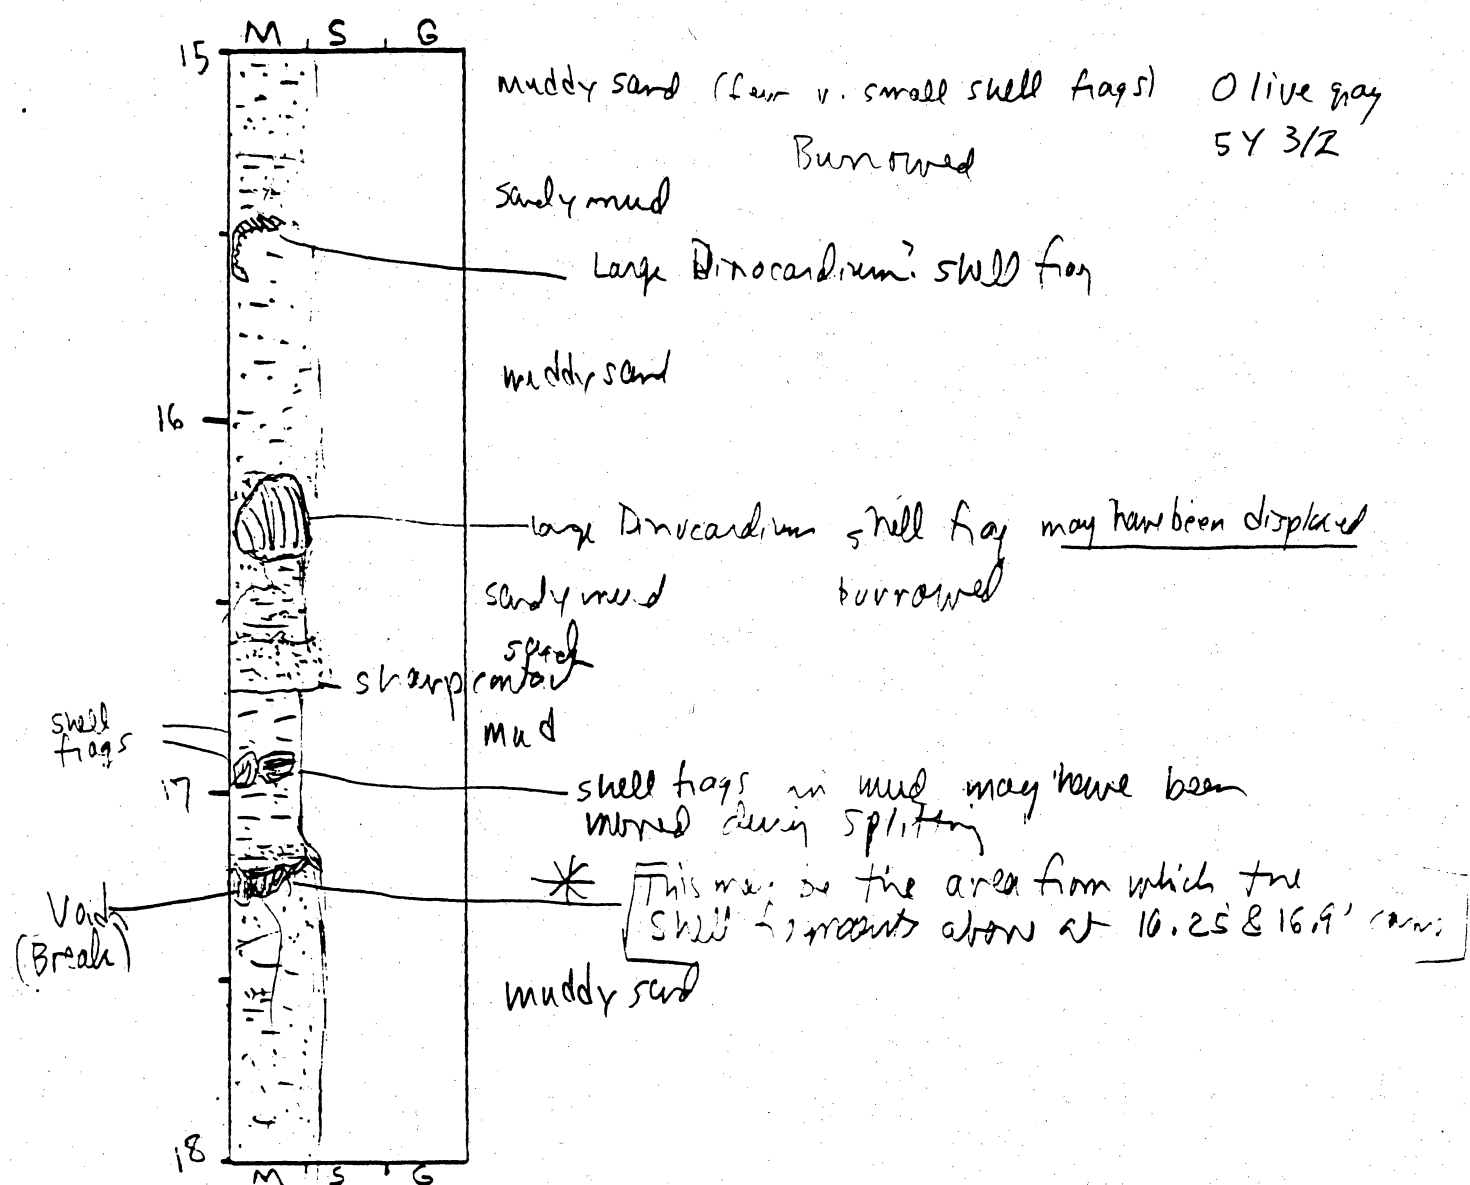 M S G
15
muddy sand (few v. small shell frags) Olive gray
5Y 3/2
Burrowed
sandy mud
Large Dinocardium? shell frag
muddy sand
16
Large Dinocardium shell frag may have been displaced
sandy mud burrowed
sharp contact
shell
frags
mud
17
shell frags in mud may have been
moved during splitting
Void
(Break)
This may be the area from which the
shell fragments above at 16.25' & 16.9'
muddy sand
18
M S G